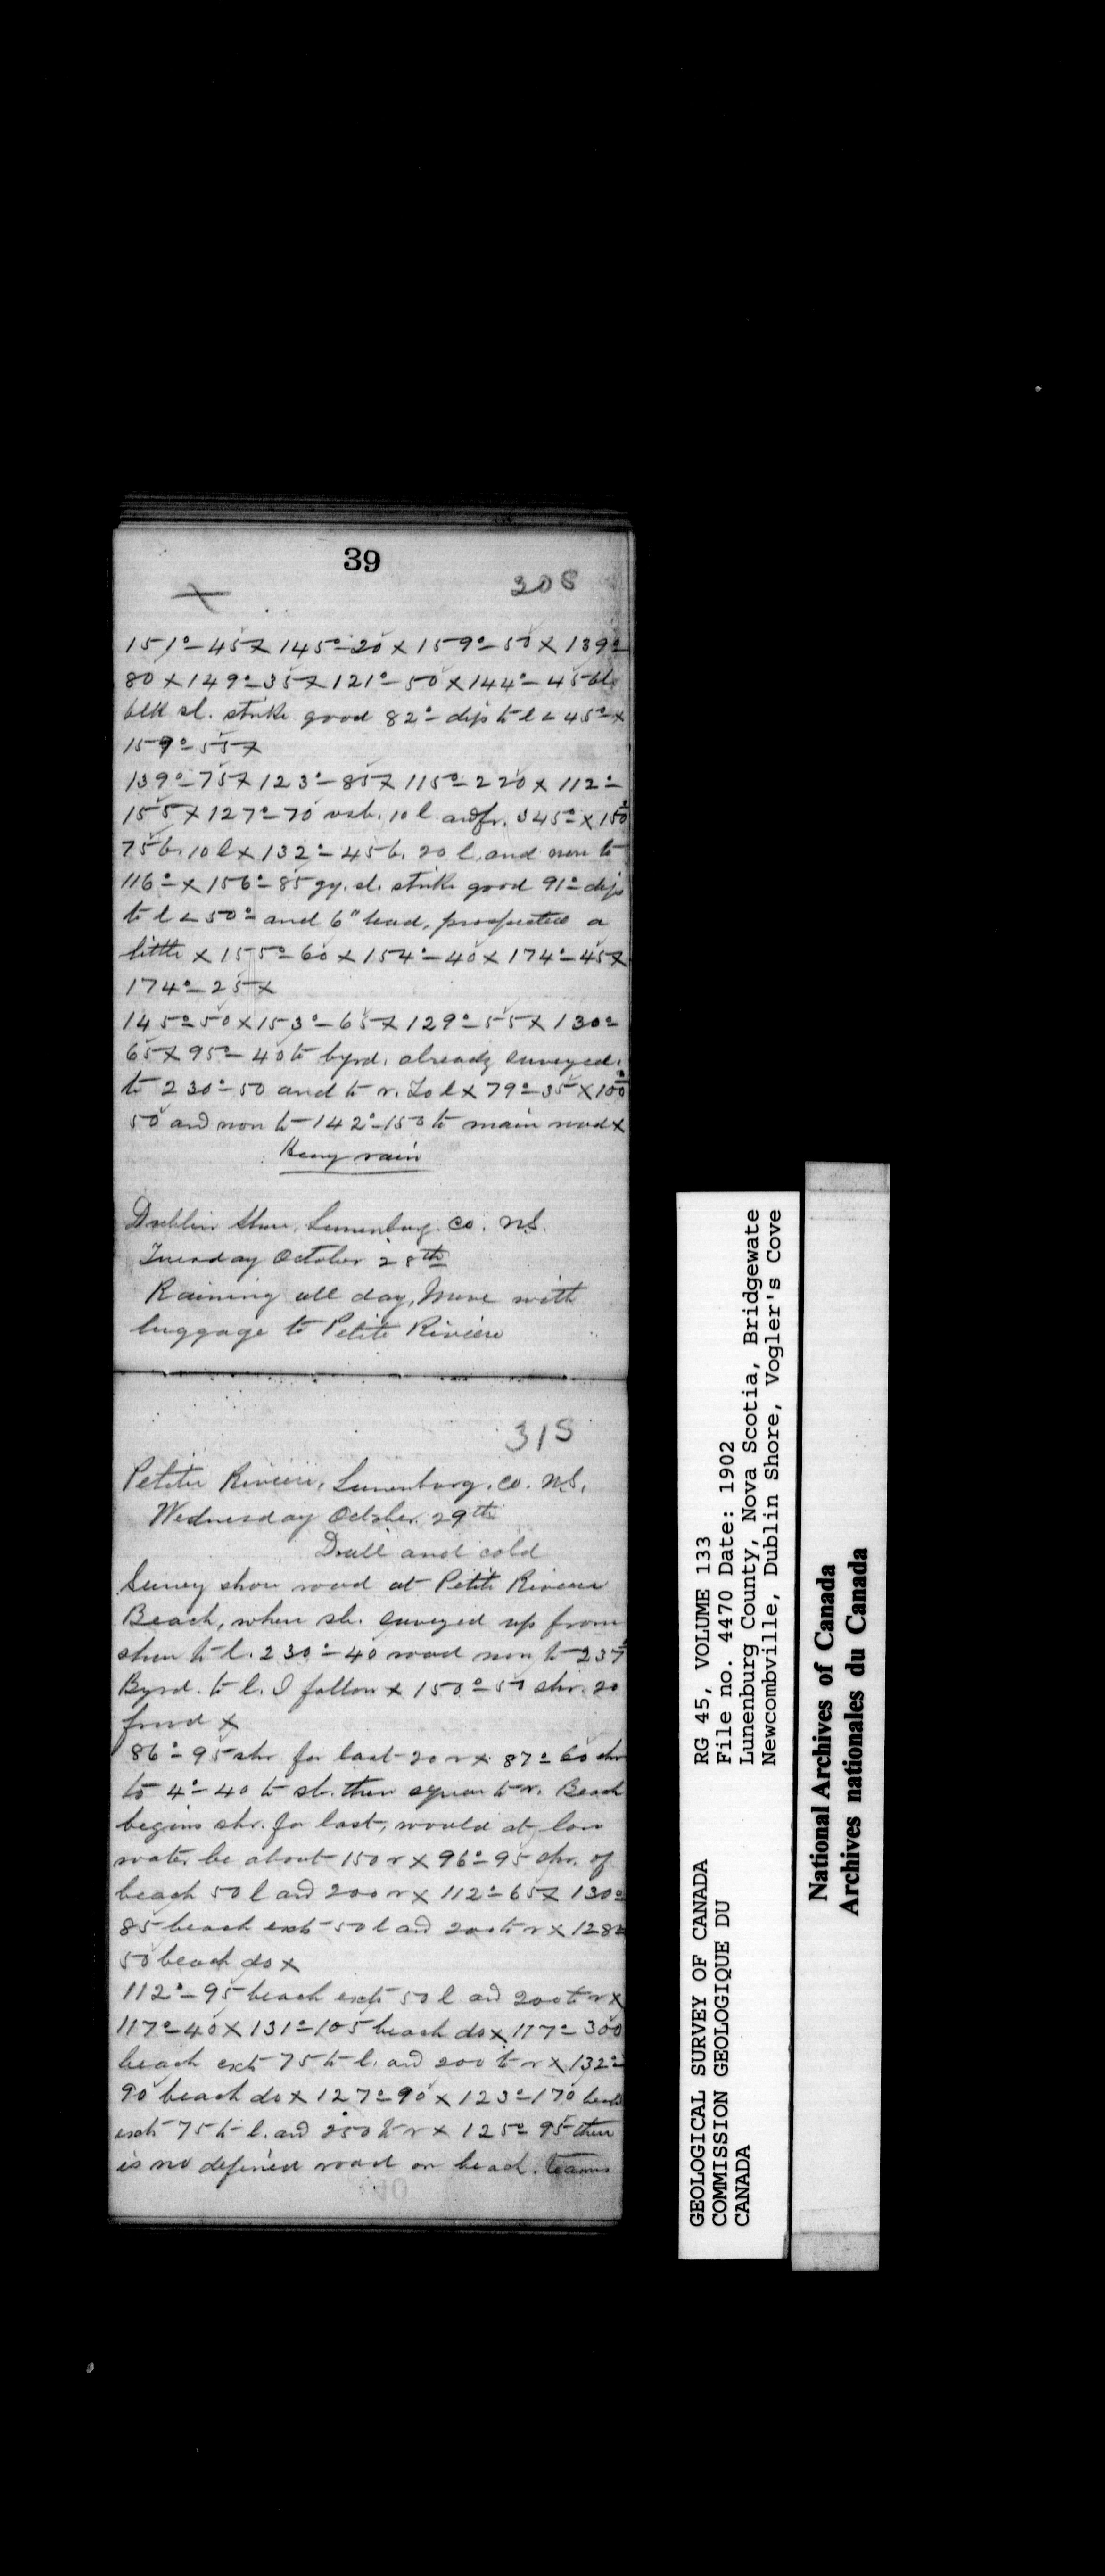 39
30S
X
151°-45 X 145°-20 X 159°-50 X 139°-
80 X 149°-35 X 121°-50 X 144°-45 bl.
blk sl. strike good 82° dip to l ∠ 45° X
159°-55 X
139°-75 X 123°-85 X 115°-220 X 112°-
155 X 127°-70 10 l. and fr. 345° X 150°
75 b. 10 l X 132°-45 b. 20 l. and to
116° X 156°-85 gy. sl. strike good 91° dip
to l ∠ 50° and 6" lead, prospected a
little X 155°-60 X 154°-40 X 174°-45 X
174°-25 X
145°-50 X 153°-65 X 129°-55 X 130°-
65 X 95°-40 to byrd. already surveyed.
to 230°-50 and to r. to l X 79°-35 X 100°
50 and to 142°-150 to main road X
Heavy rain
Dublin Shore, Lunenburg. Co. N.S.
Tuesday October 28th
Raining all day, Move with
luggage to Petite Riviere
31S
Petite Riviere, Lunenburg. Co. N.S.
Wednesday October 29th
Dull and cold
Survey shore road at Petite Riviere
Beach, where sl. surveyed up from
shore to l. 230°-40 road to 237°
Byrd. to l. I follow X 150°-50 shr. 20
X
86°-95 shr for last 20 r X 87°-60 shr
to 4°-40 to sl. then square to r. Beach
begins shr. for last, would at low
water be about 150 r X 96°-95 shr. of
beach 50 l and 200 r X 112°-65 X 130°
85 beach exts 50 l and 200 to r X 128°
50 beach do X
112°-95 beach exts 50 l and 200 to r X
117°-40 X 131°-105 beach do X 117°-300
beach exts 75 to l. and 200 to r X 132°-
90 beach do X 127°-90 X 123°-170 beach
exts 75 to l. and 250 to r X 125°-95 there
is no defined road on beach. teams
GEOLOGICAL SURVEY OF CANADA
COMMISSION GEOLOGIQUE DU
CANADA
RG 45, VOLUME 133
File no. 4470 Date: 1902
Lunenburg County, Nova Scotia, Bridgewate
Newcombville, Dublin Shore, Vogler's Cove
National Archives of Canada
Archives nationales du Canada